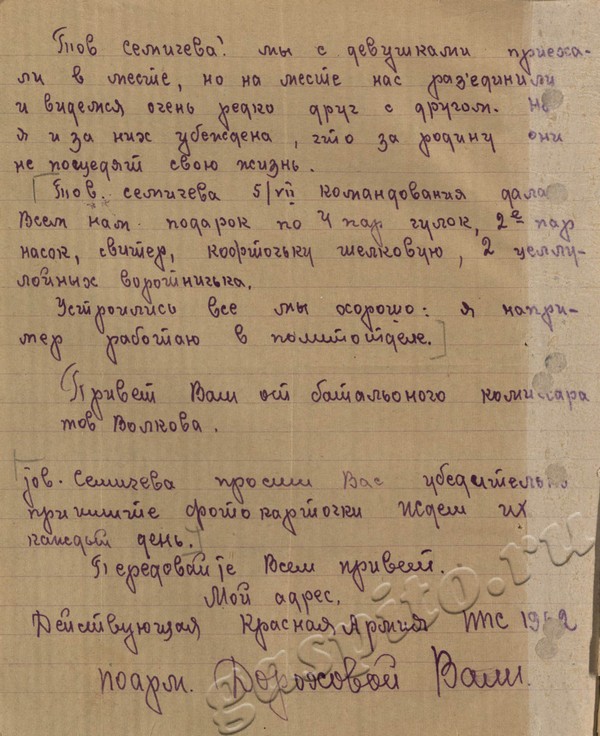 Тов Семичева! мы с девушками приеха-
ли в месте, но на месте нас раз'единили
и видемся очень редко друг с другом. Но
я и за них убеждена, что за родину они
не пощедят свою жизнь.
[Тов. семичева 5/VII командования дала
Всем нам подарок по 4 пар чулок, 2е пар
насок, свитер, кофточьку шелковую, 2 целлу-
лойных воротничька.
Устроились все мы хорошо: я напри-
мер работаю в политотделе.]
Привет Вам от батальоного комиссара
тов Волкова.
Тов. Семичева просим Вас убедительно
пришлите фотокарточки Ждем их
каждый день.
Передовайте Всем привет.
Мой адрес.
Действующая Красная Армия ППС
поарм. Дороховой Вали.
gaspito.ru